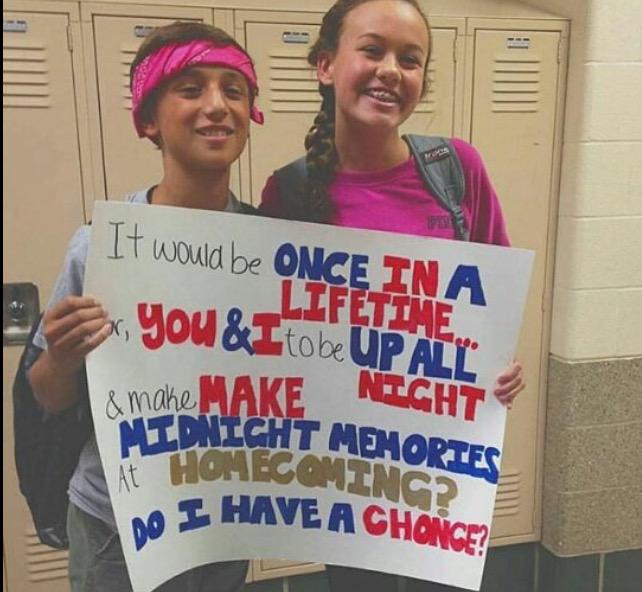 It would be ONCE IN A
LIFETIME...
r, YOU & I to be UP ALL
NIGHT
& make MAKE
MIDNIGHT MEMORIES
At HOMECOMING?
DO I HAVE A CHONCE?